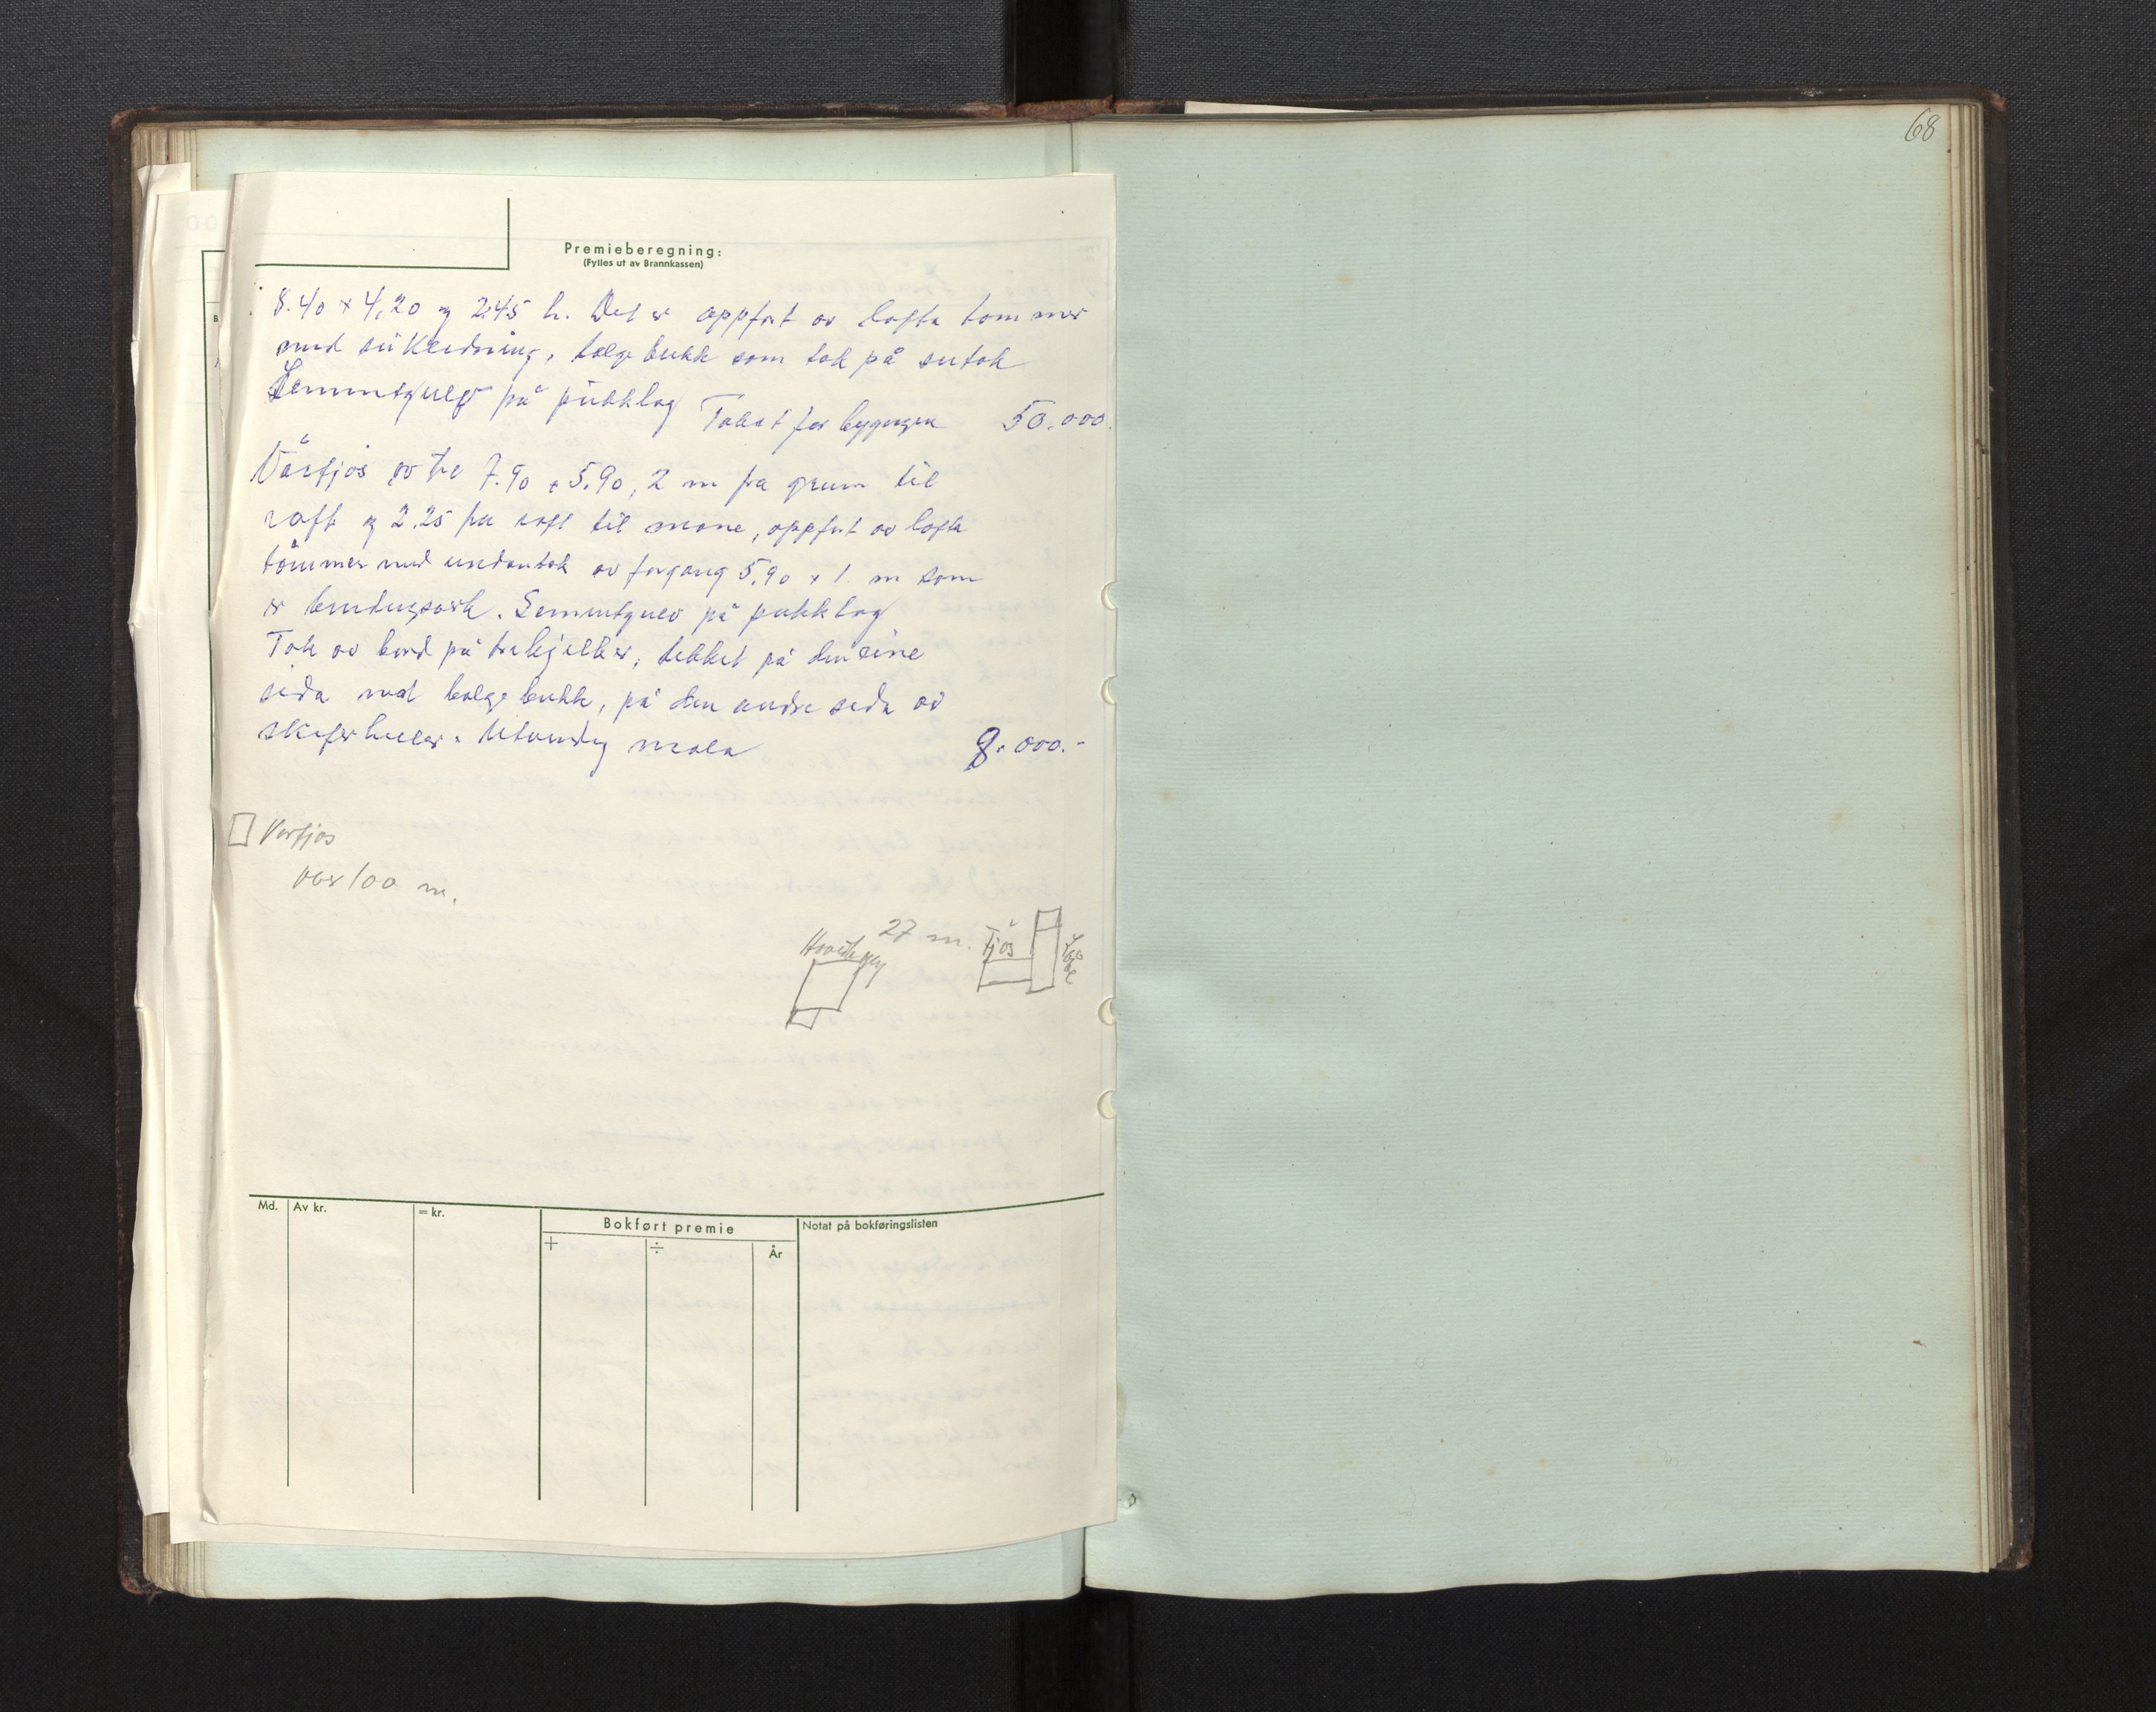 68
Premieberegning:
(Fylles ut av Brannkassen)
8.40 x 4,20 og 2.45 h. Det er oppført av lafta tømmer
med sukledning, bølgeblikk som tak på sutak
Sementgulv på pukklag Takst for bygningen 50.000.
Vårfjøs av tre 7.90 x 5.90, 2 m fra grunn til
raft og 2.25 fra raft til møne, oppført av lafta
tømmer med undantak av forgang 5.90 x 1 m som
er bindingsverk. Sementgulv på pukklag
Tak av bord på trebjelker, tekket på den eine
sida med bølgeblikk, på den andre sida av
skiferheller. Utvendig mala 8.000.-
Vorfjøs
over 100 m.
27 m.
Hovedbygn
Fjøs
Løe
Md.
Av kr.
= kr.
Bokført premie
+
÷
År
Notat på bokføringslisten